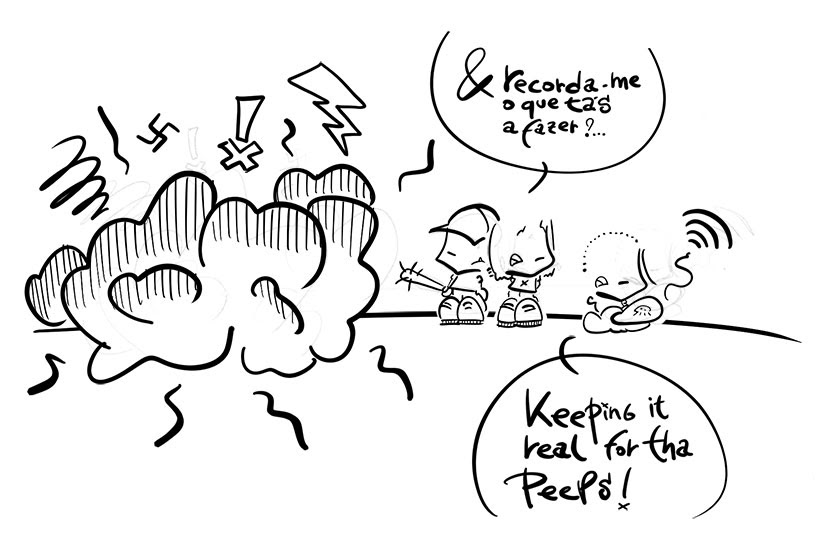 & recorda-me
o que tás
a fazer?...
Keeping it
real for tha
Peeps!